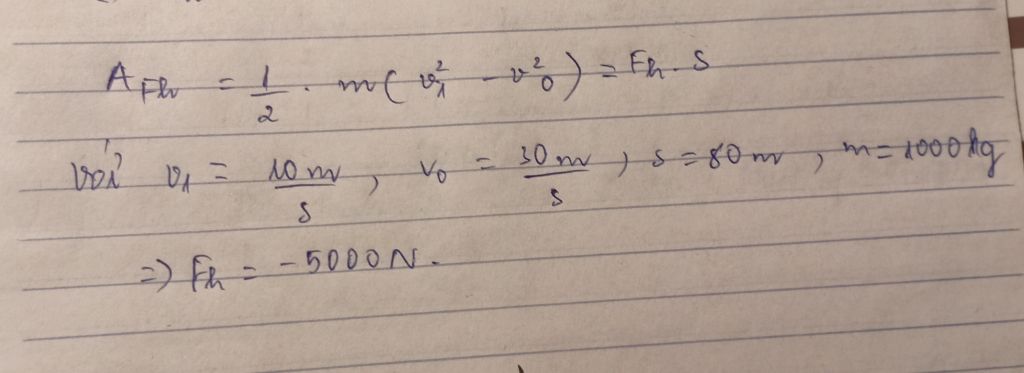 A_Fh = 1/2 . m ( v₁² - v₀² ) = Fh . s
với v₁ = 10 m/s , v₀ = 30 m/s , s = 80 m , m = 1000 kg
=> Fh = - 5000 N.